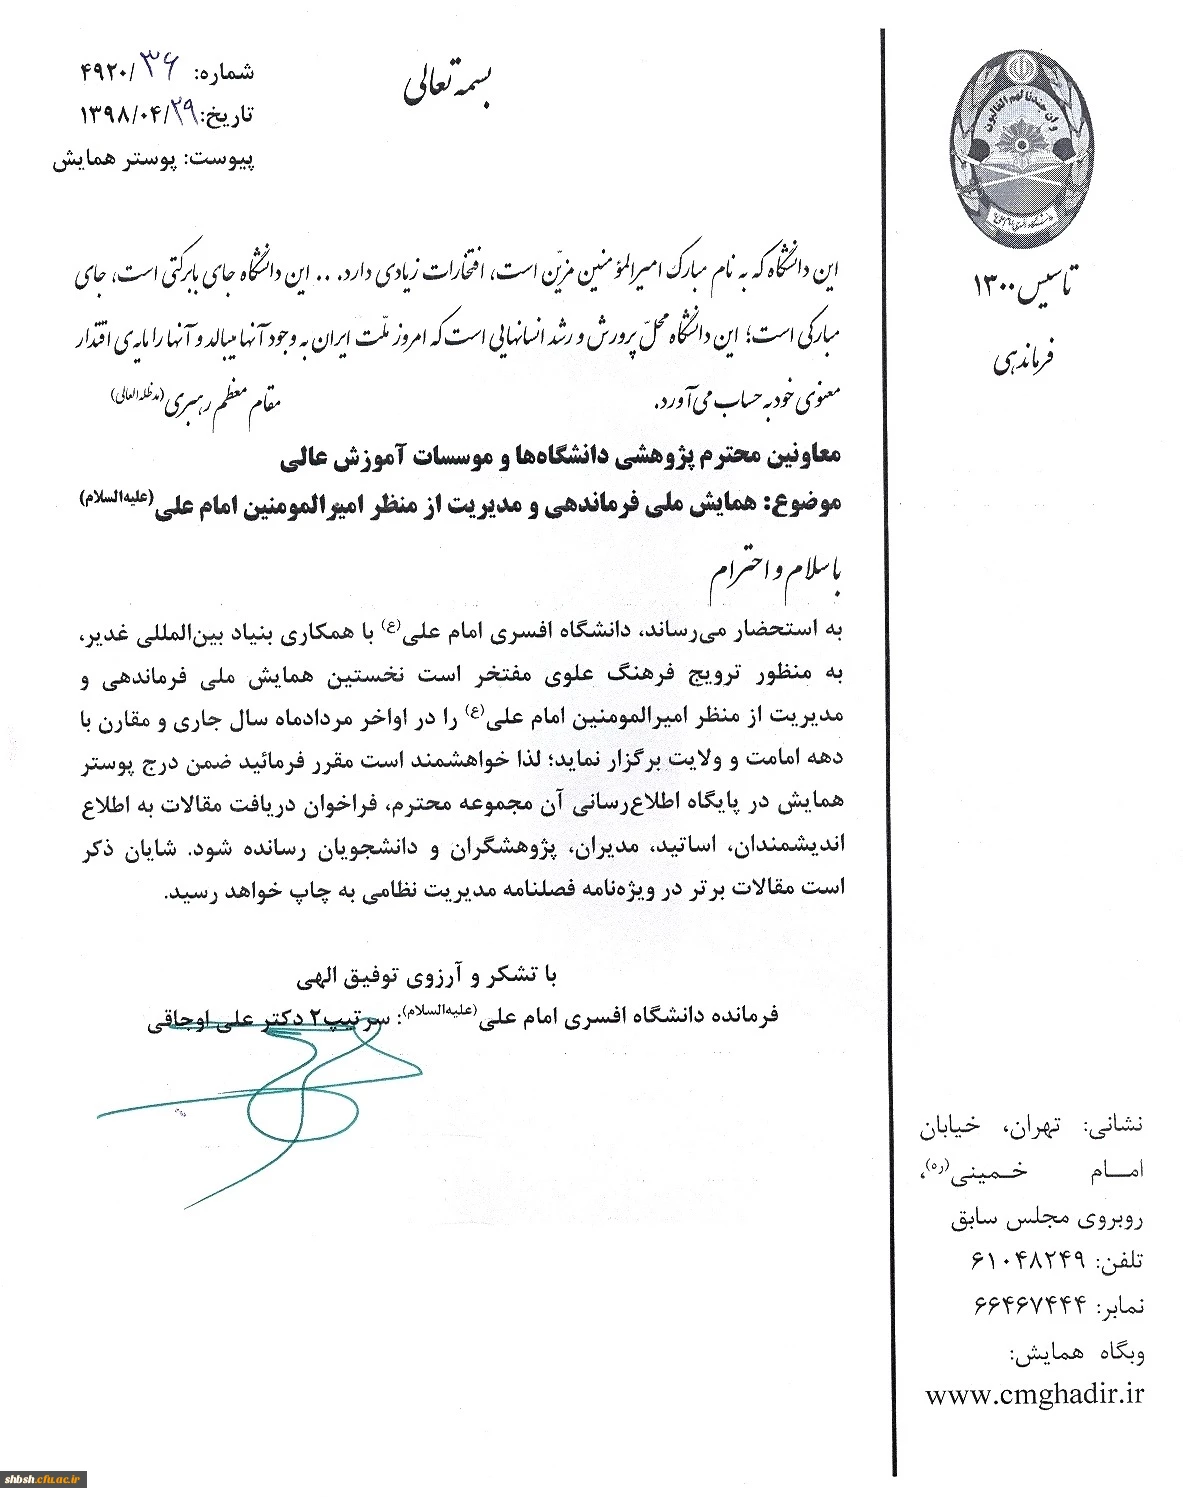 بسمه تعالی
شماره: ۴۹۲۰/۳۶
تاریخ: ۱۳۹۸/۰۴/۲۹
پیوست: پوستر همایش
و ان جندنا لهم الغالبون
تاسیس ۱۳۰۰
فرماندهی
این دانشگاه که به نام مبارک امیرالمؤمنین مزیّن است، افتخارات زیادی دارد. .. این دانشگاه جای بابرکتی است، جای
مبارکی است؛ این دانشگاه محلّ پرورش و رشد انسانهایی است که امروز ملّت ایران به وجود آنها میبالد و آنها را مایه‌ی اقتدار
معنوی خود به حساب می‌آورد.
مقام معظم رهبری (مدظله العالی)
معاونین محترم پژوهشی دانشگاه‌ها و موسسات آموزش عالی
موضوع: همایش ملی فرماندهی و مدیریت از منظر امیرالمومنین امام علی (علیه‌السلام)
با سلام و احترام
به استحضار می‌رساند، دانشگاه افسری امام علی(ع) با همکاری بنیاد بین‌المللی غدیر،
به منظور ترویج فرهنگ علوی مفتخر است نخستین همایش ملی فرماندهی و
مدیریت از منظر امیرالمومنین امام علی(ع) را در اواخر مردادماه سال جاری و مقارن با
دهه امامت و ولایت برگزار نماید؛ لذا خواهشمند است مقرر فرمائید ضمن درج پوستر
همایش در پایگاه اطلاع‌رسانی آن مجموعه محترم، فراخوان دریافت مقالات به اطلاع
اندیشمندان، اساتید، مدیران، پژوهشگران و دانشجویان رسانده شود. شایان ذکر
است مقالات برتر در ویژه‌نامه فصلنامه مدیریت نظامی به چاپ خواهد رسید.
با تشکر و آرزوی توفیق الهی
فرمانده دانشگاه افسری امام علی(علیه‌السلام): سرتیپ۲ دکتر علی اوجاقی
نشانی: تهران، خیابان
امام خمینی(ره)،
روبروی مجلس سابق
تلفن: ۶۱۰۴۸۲۴۹
نمابر: ۶۶۴۶۷۴۴۴
وبگاه همایش:
www.cmghadir.ir
shbsh.cfu.ac.ir